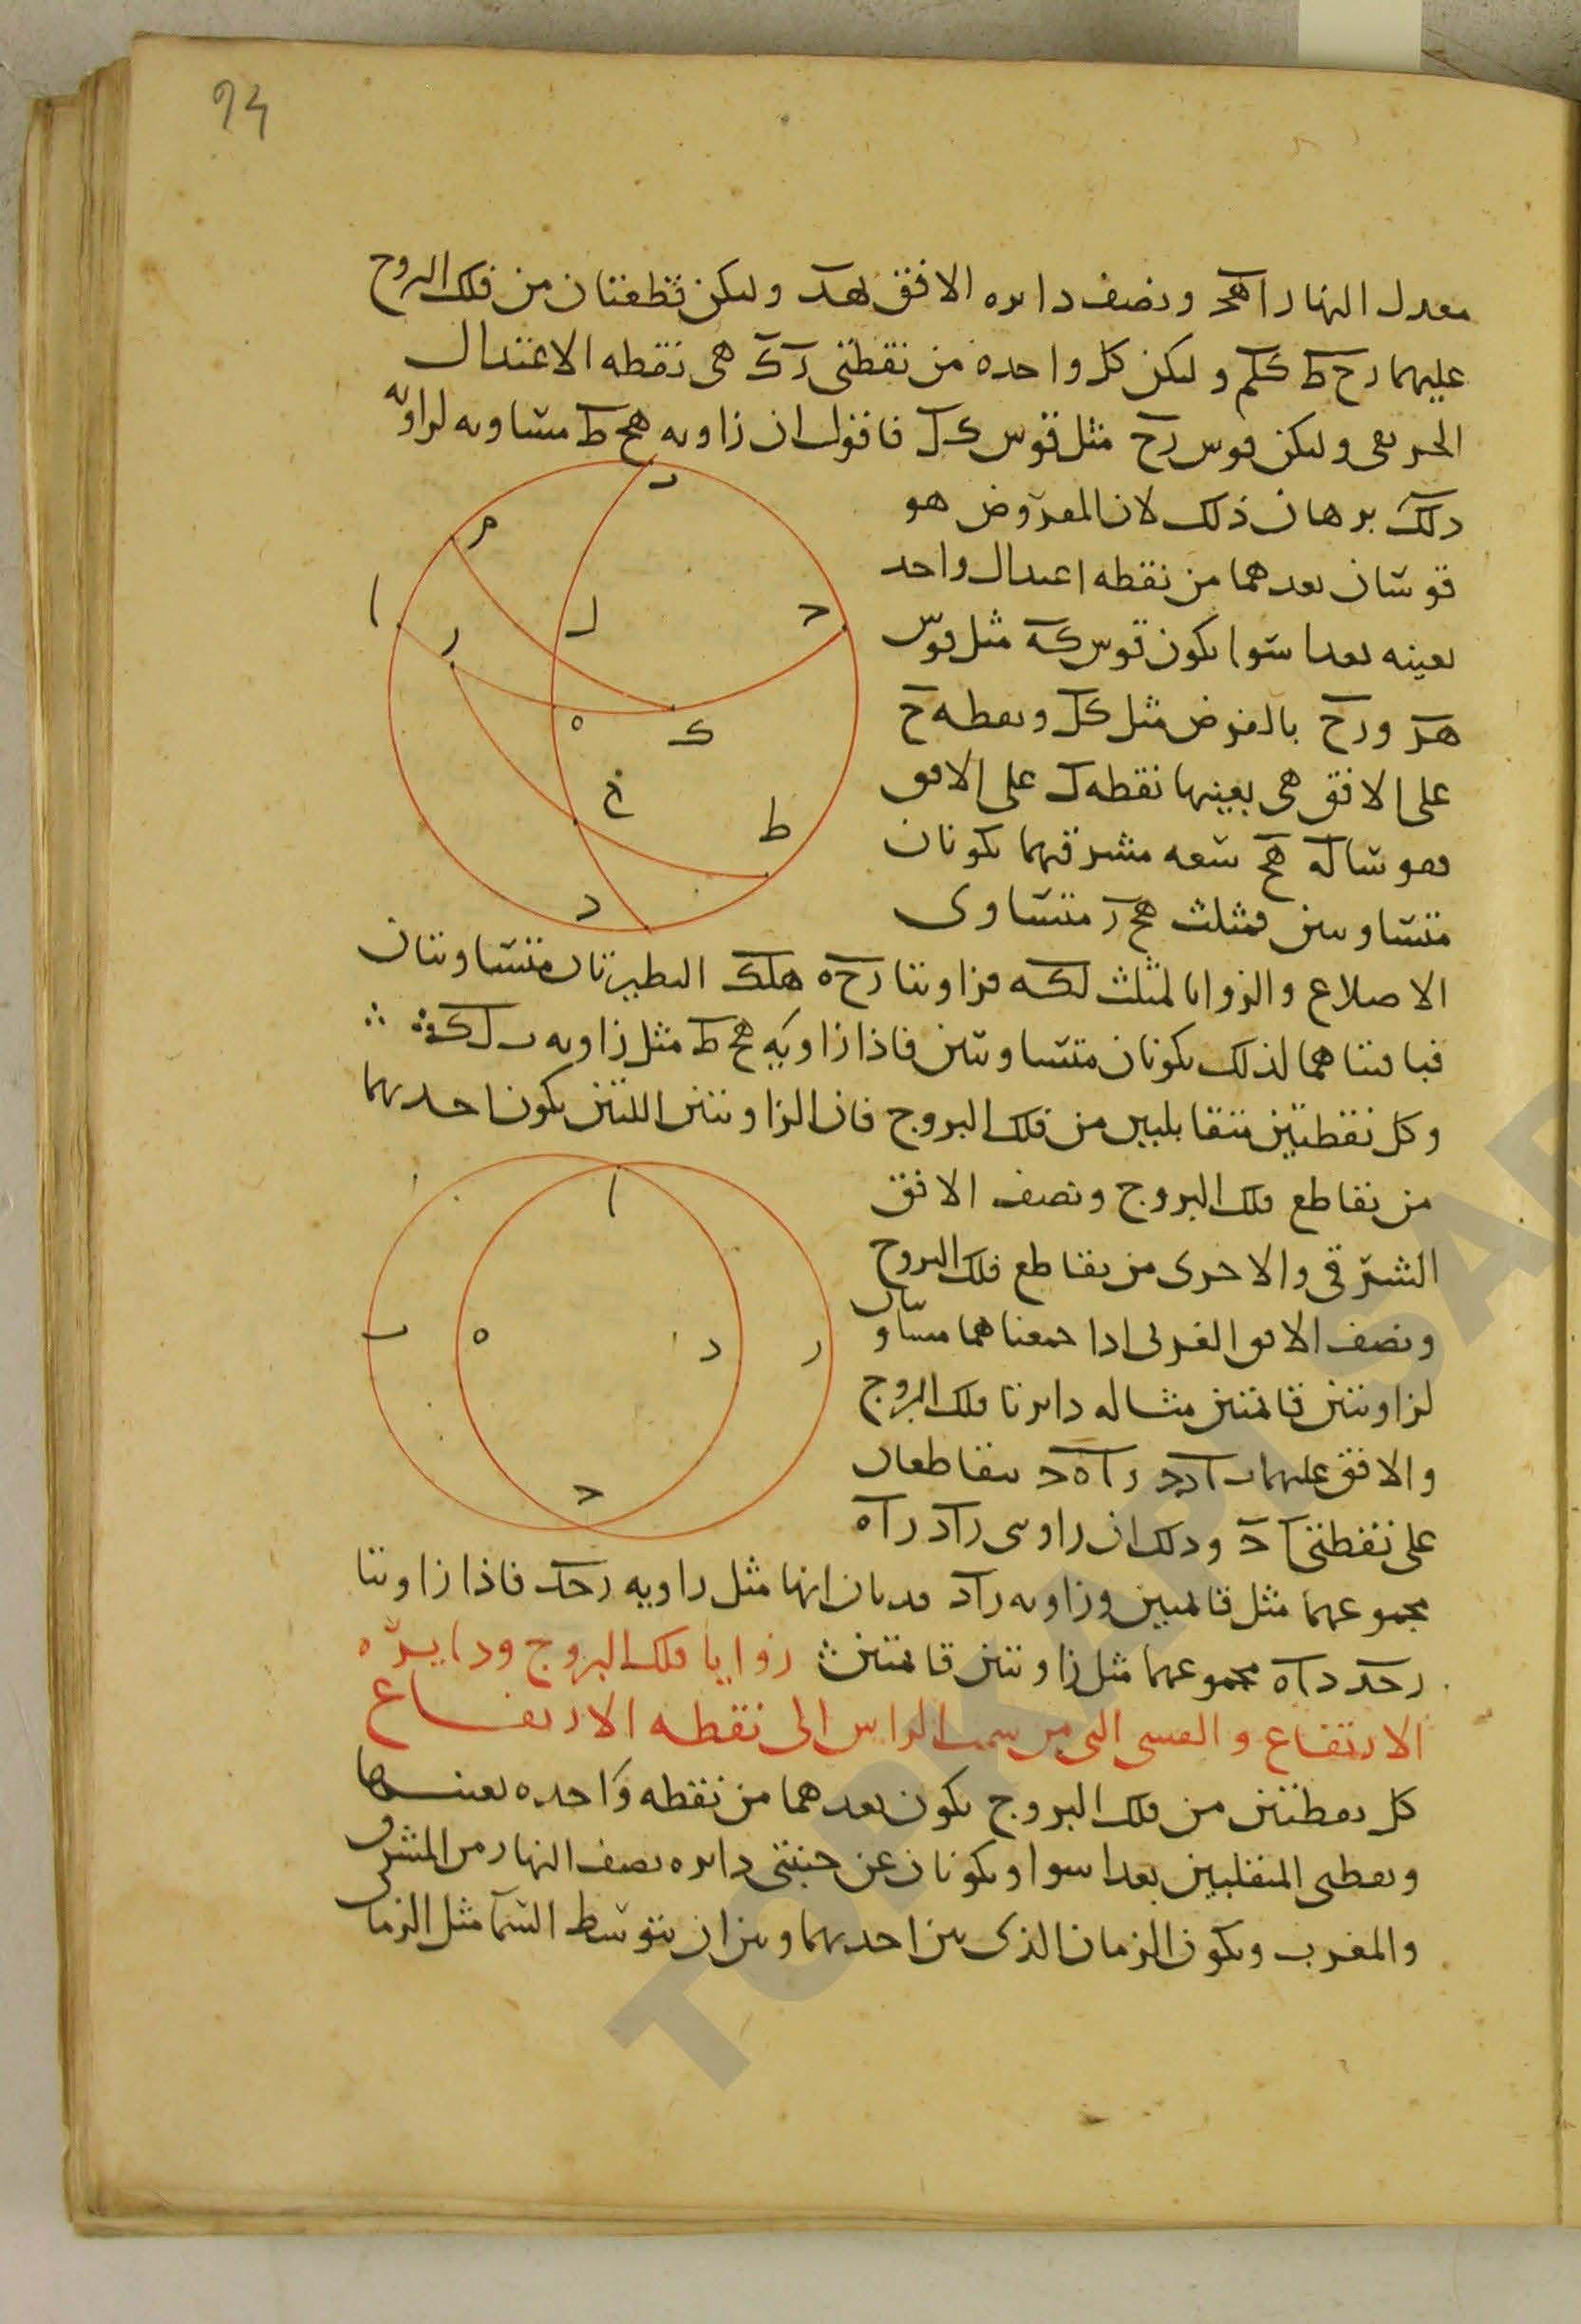 94
معدل النهار اهج ونصف دايره الافق بهد وليكن قطعتان من فلك البروج
عليهما زح ط كلم وليكن كل واحده من نقطتي ز ك هي نقطه الاعتدال
الخريفي وليكن قوس زح مثل قوس كل فاقول ان زاويه هح ط مساويه لزاويه
دلك برهان ذلك لان المفروض هو
قوسان بعدهما من نقطه اعتدال واحد
بعينه بعدا سوا يكون قوس كه مثل قوس
هز وزح بالفرض مثل كل ونقطه ح
على الافق هي بعينها نقطه ل على الافق
فقوسا له هح سعه مشرقهما يكونان
متساويين فمثلث هح ز متساوى
الاضلاع والزوايا لمثلث لكه فزاويتا زحه هلك النظيرتان متساويتان
فباقيتاهما لذلك يكونان متساويتين فاذا زاويه هح ط مثل زاويه د ل ك
وكل نقطتين متقابلتين من فلك البروج فان الزاويتين اللتين يكون احدهما
من تقاطع فلك البروج ونصف الافق
الشرقي والاخرى من تقاطع فلك البروج
ونصف الافق الغربى اذا جمعناهما مساويتان
لزاويتين قائمتين مثاله دايرتا فلك البروج
والافق عليهما ب ا د ج ز ا ه ج يتقاطعان
على نقطتى ا ج وذلك ان زاويتى ز ا د ز ا ه
مجموعهما مثل قائمتين وزاويه ز ا د قد بان انها مثل زاويه زجد فاذا زاويتا
زجد د ا ه مجموعهما مثل زاويتين قائمتين زوايا فلك البروج ودايره
الارتفاع والقسى التى من سمت الراس الى نقطه الارتفاع
كل نقطتين من فلك البروج يكون بعدهما من نقطه واحده بعينها
ونقطتى المنقلبين بعدا سوا ويكونان عن جنبتى دايره نصف النهار من المشرق
والمغرب ويكون الزمان الذى بين احديهما وبين ان يتوسط السما مثل الزمان
ب
م
ا
ل
ج
ز
ه
ك
ح
ط
د
ا
ب
ه
د
ز
ج
TOPKAPI SAR